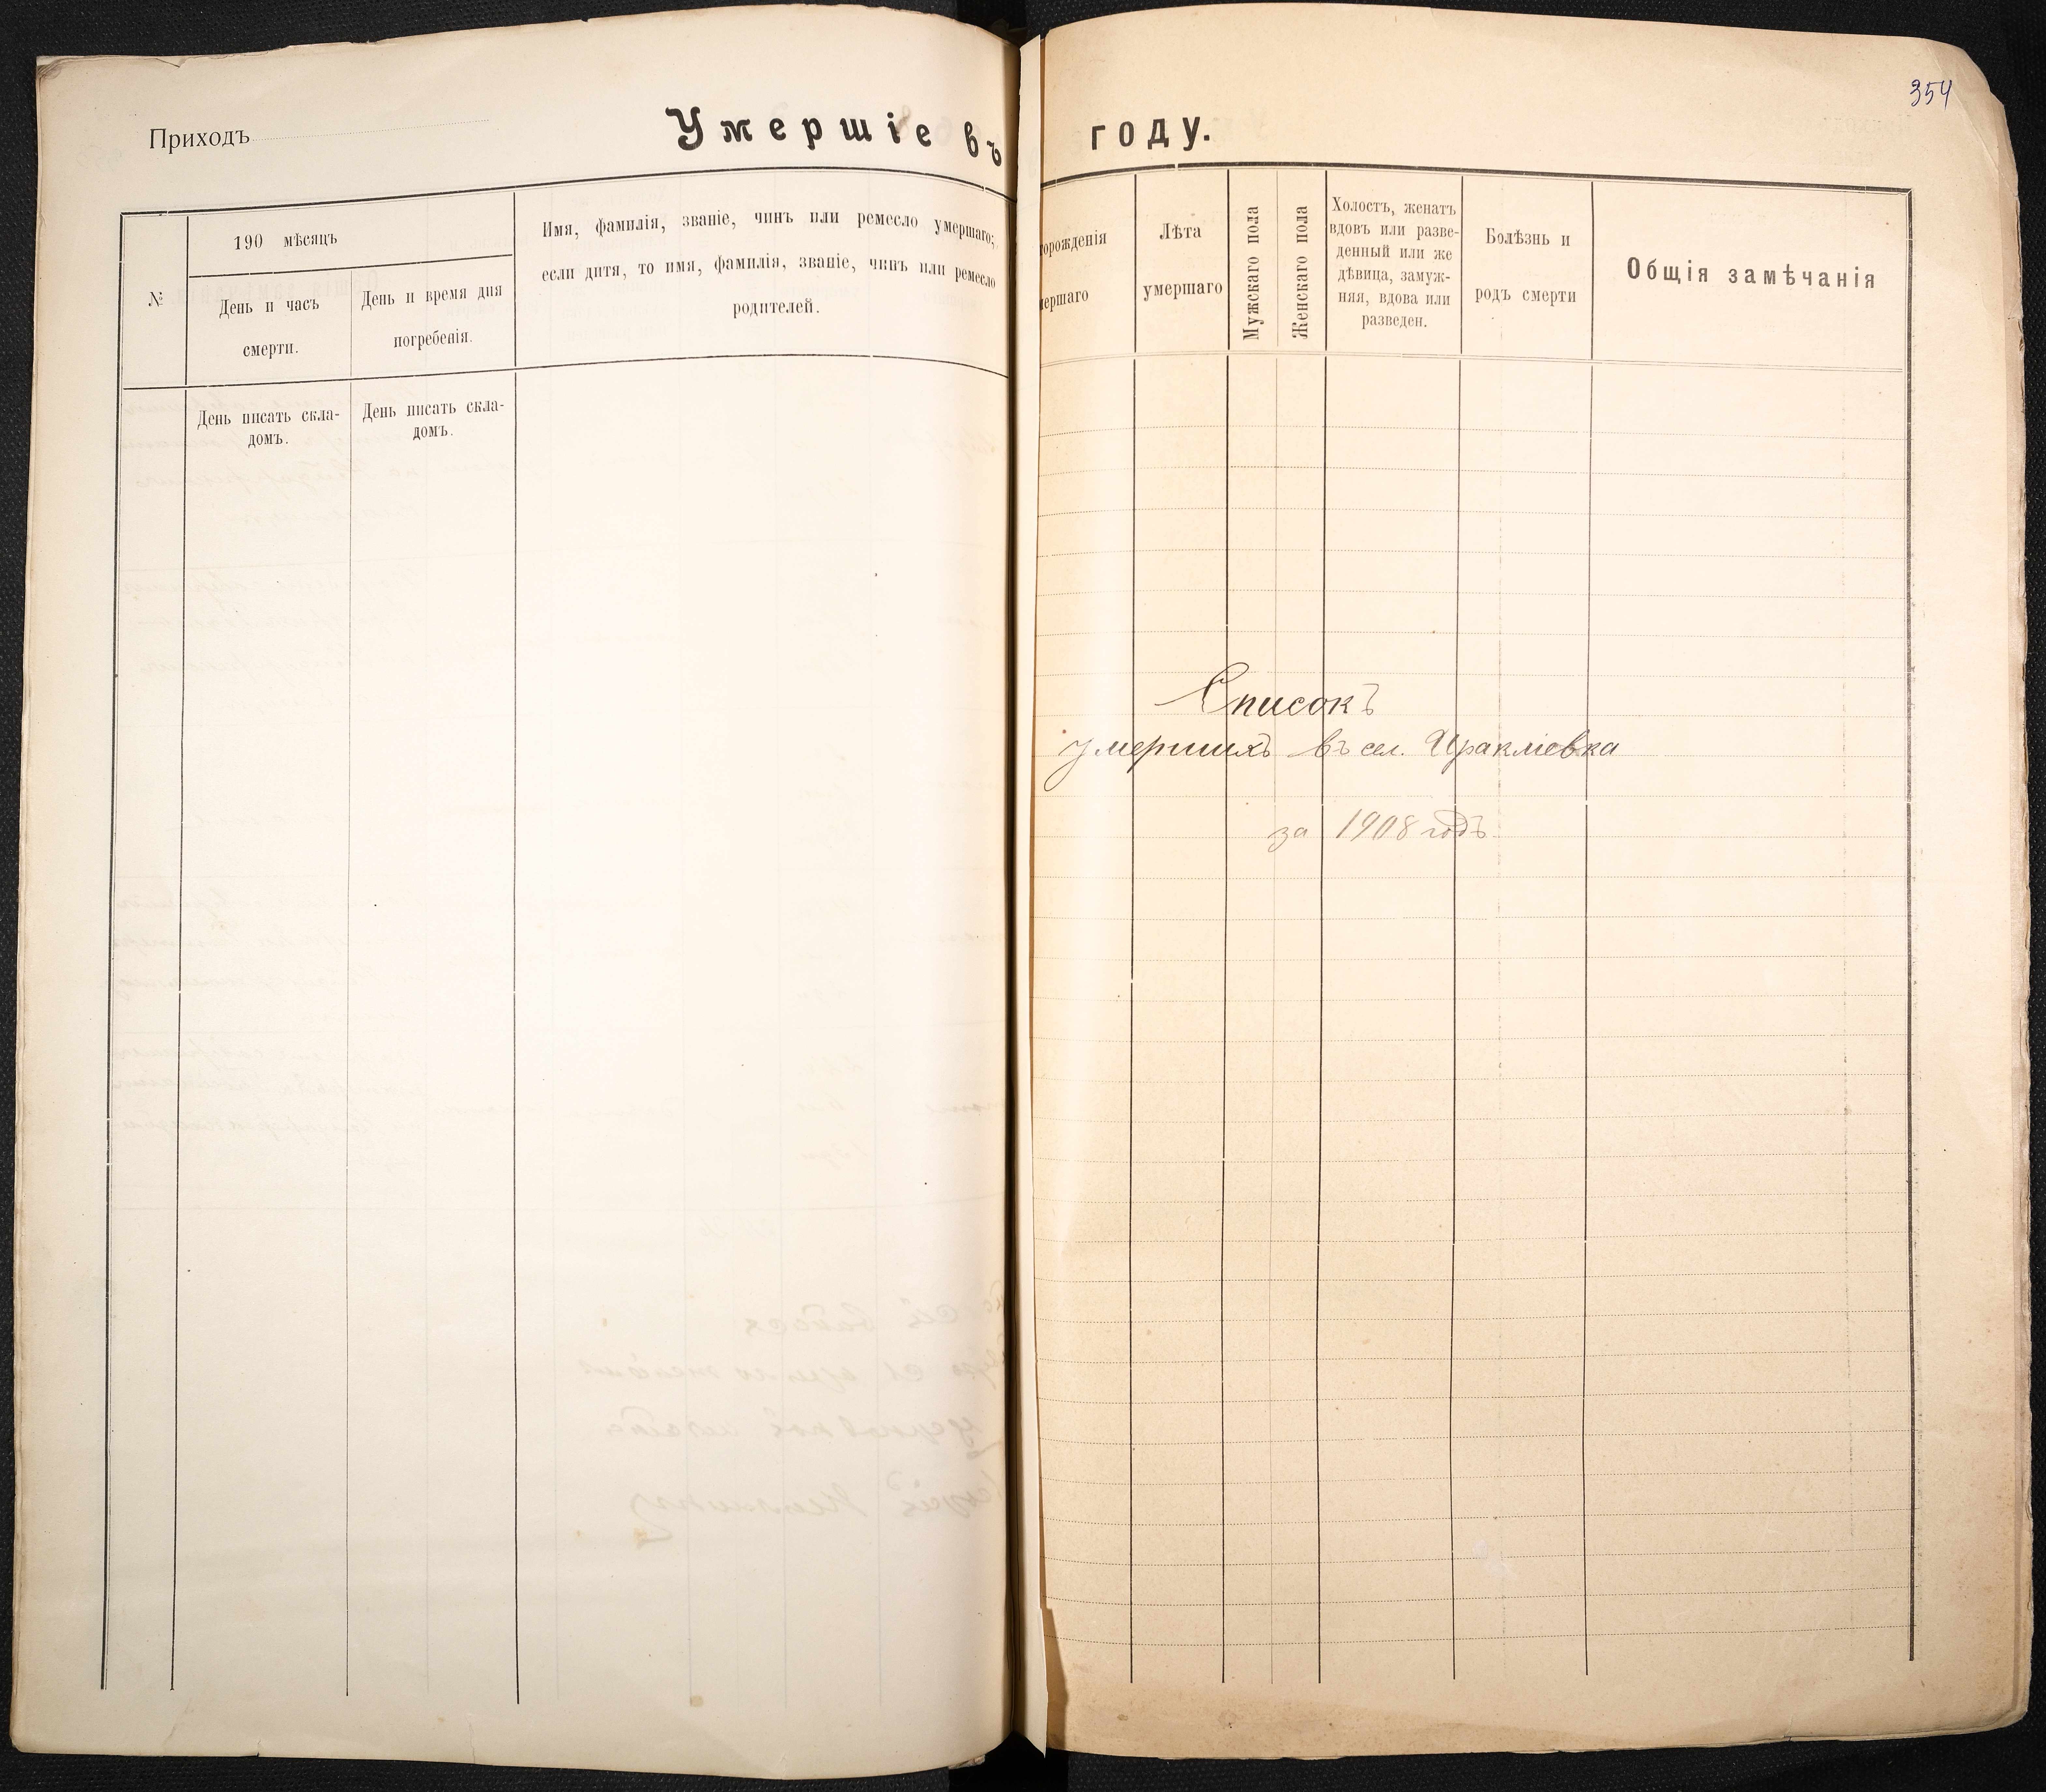 Приходъ
Умершіе въ
190 мѣсяцъ
№
День и часъ
смерти.
День и время дня
погребенія.
Имя, фамилія, званіе, чинъ или ремесло умершаго;
если дитя, то имя, фамилія, званіе, чинъ или ремесло
родителей.
День писать скла-
домъ.
День писать скла-
домъ.
354
году.
торожденія
мершаго
Лѣта
умершаго
Мужскаго пола
Женскаго пола
Холостъ, женатъ
вдовъ или разве-
денный или же
дѣвица, замуж-
няя, вдова или
разведен.
Болѣзнь и
родъ смерти
Общія замѣчанія
Списокъ
умершихъ въ сел. Иракліевка
за 1908 годъ